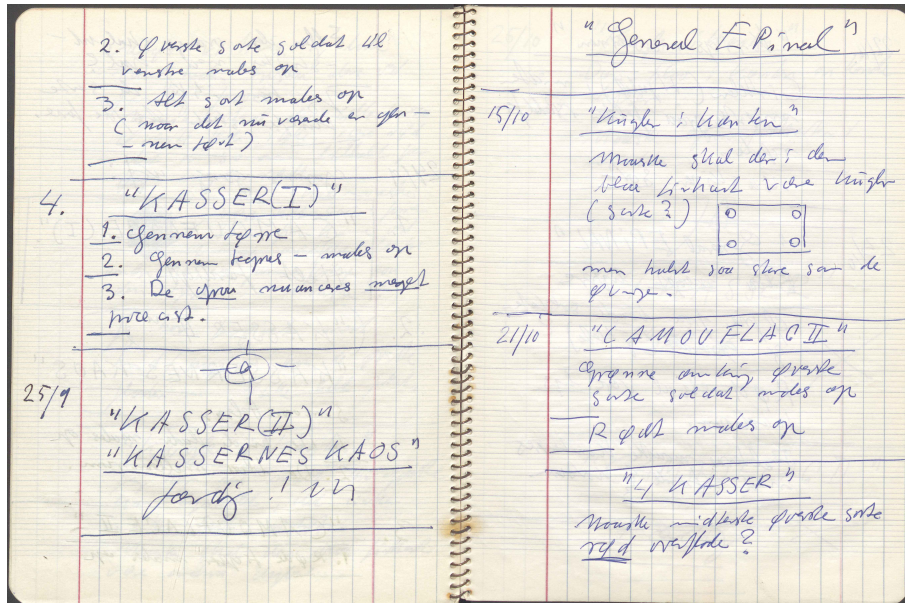 2. Øverste sorte soldat til
venstre males op
3. Alt sort males op
(naar det nu værende er gen-
- nem tørt)
4. "KASSER(I)"
1. Gennem tørre
2. Gennem tegnes - males op
3. De graa nuanceres meget
præcist.
25/9
"KASSER(II)"
"KASSERNES KAOS"
færdig!
"General EPinal"
15/10 "Kugler i Kanten"
Maaske skal der i den
blaa firkant være kugler
(sorte?)
men halvt saa store som de
øvrige.
21/10 "CAMOUFLAGE II"
Grønne omkring øverste
sorte soldat males op
Rødt males op
"4 KASSER"
Maaske midterste øverste sorte
rød overflade?